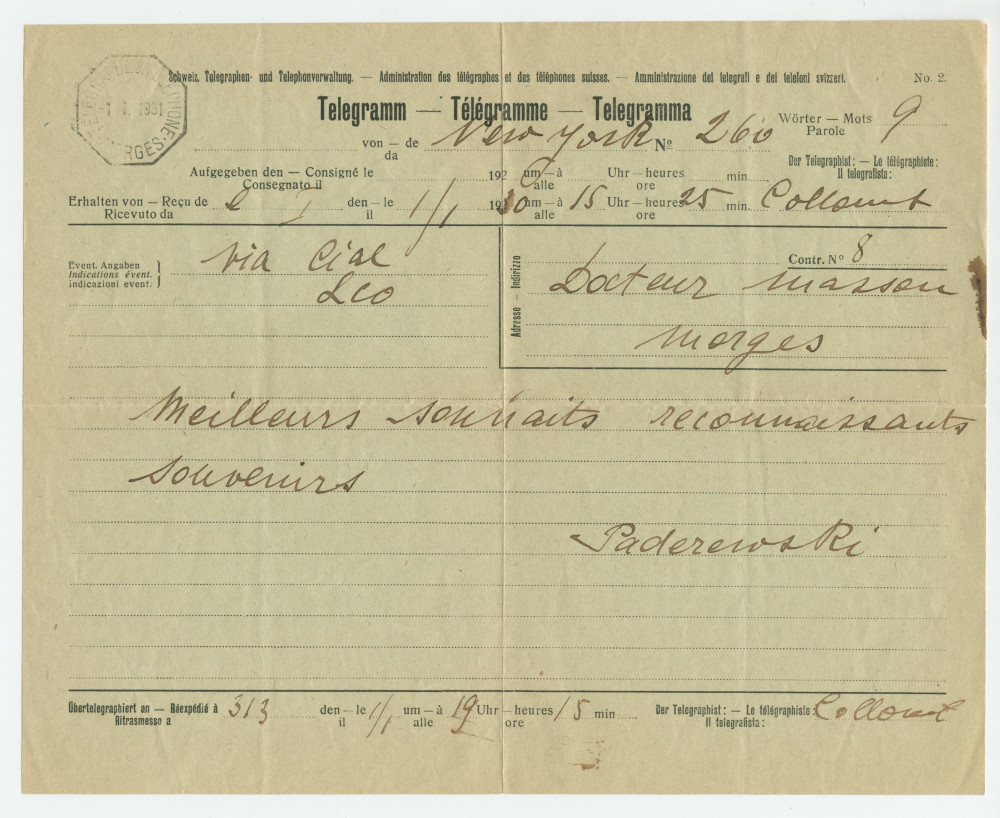 Schweiz. Telegraphen- und Telephonverwaltung. — Administration des télégraphes et des téléphones suisses. — Amministrazione dei telegrafi e dei telefoni svizzeri. No. 2.
1931
RGES
Telegramm — Télégramme — Telegramma
von — de New York No 260 Wörter — Mots 9
da Parole
Der Telegraphist: — Le télégraphiste:
Il telegrafista:
Aufgegeben den — Consigné le 192 um — à Uhr — heures min
Consegnato il alle ore
Erhalten von — Reçu de den — le 1/1 30 um — à 15 Uhr — heures 25 min. Collomb
Ricevuto da il alle ore
Event. Angaben
Indications évent.
Indicazioni event.
via Cial
Lco
Adresse — Indirizzo
Contr. No 8
Docteur Masson
Morges
Meilleurs souhaits reconnaissants
souvenirs
Paderewski
Übertelegraphiert an — Réexpédié à 313 den — le 1/1 um — à 19 Uhr — heures 15 min
Ritrasmesso a il alle ore
Der Telegraphist: — Le télégraphiste: Collomb
Il telegrafista: